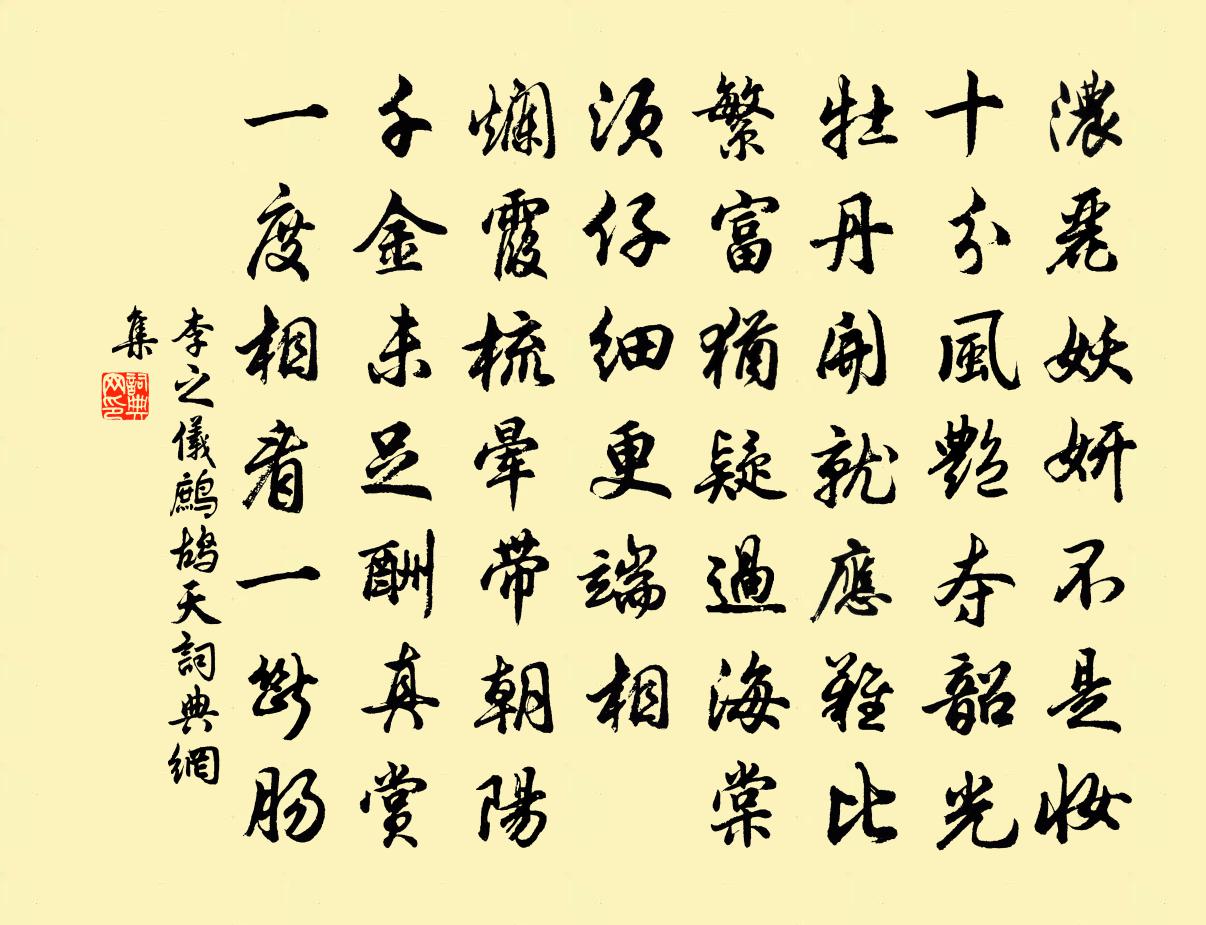 濃麗妖妍不是妝
十分風艷奪韶光
牡丹開就應難比
繁富猶疑過海棠
須仔細更端相
爛霞梳暈帶朝陽
千金未足酬真賞
一度相看一斷腸
李之儀鷓鴣天詞典網
集
詞典網印